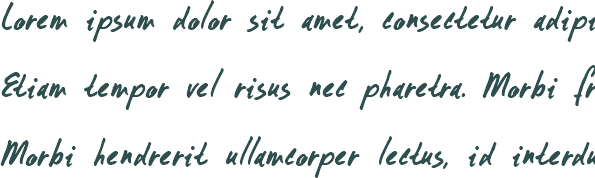 Lorem ipsum dolor sit amet, consectetur adipi
Etiam tempor vel risus nec pharetra. Morbi fr
Morbi hendrerit ullamcorper lectus, id interdu